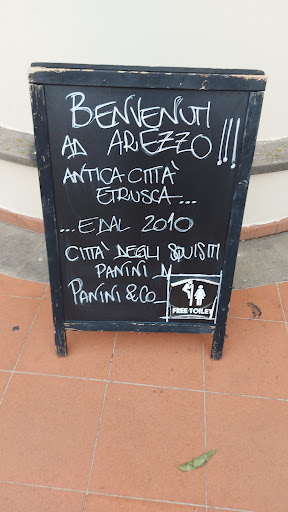 BENVENUTI
AD AREZZO!!!
ANTICA CITTÀ
ETRUSCA...
...E DAL 2010
CITTÀ DEGLI SQUISITI
PANINI DI
PANINI & CO.
FREE TOILET